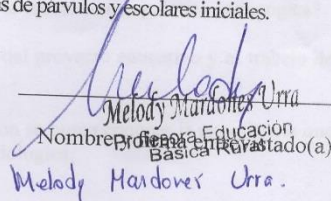 s de párvulos y escolares iniciales.
Melody Mardones Urra
Profesora Educación
Básica Rural
Nombre y firma entrevistado(a)
Melody Mardones Urra.